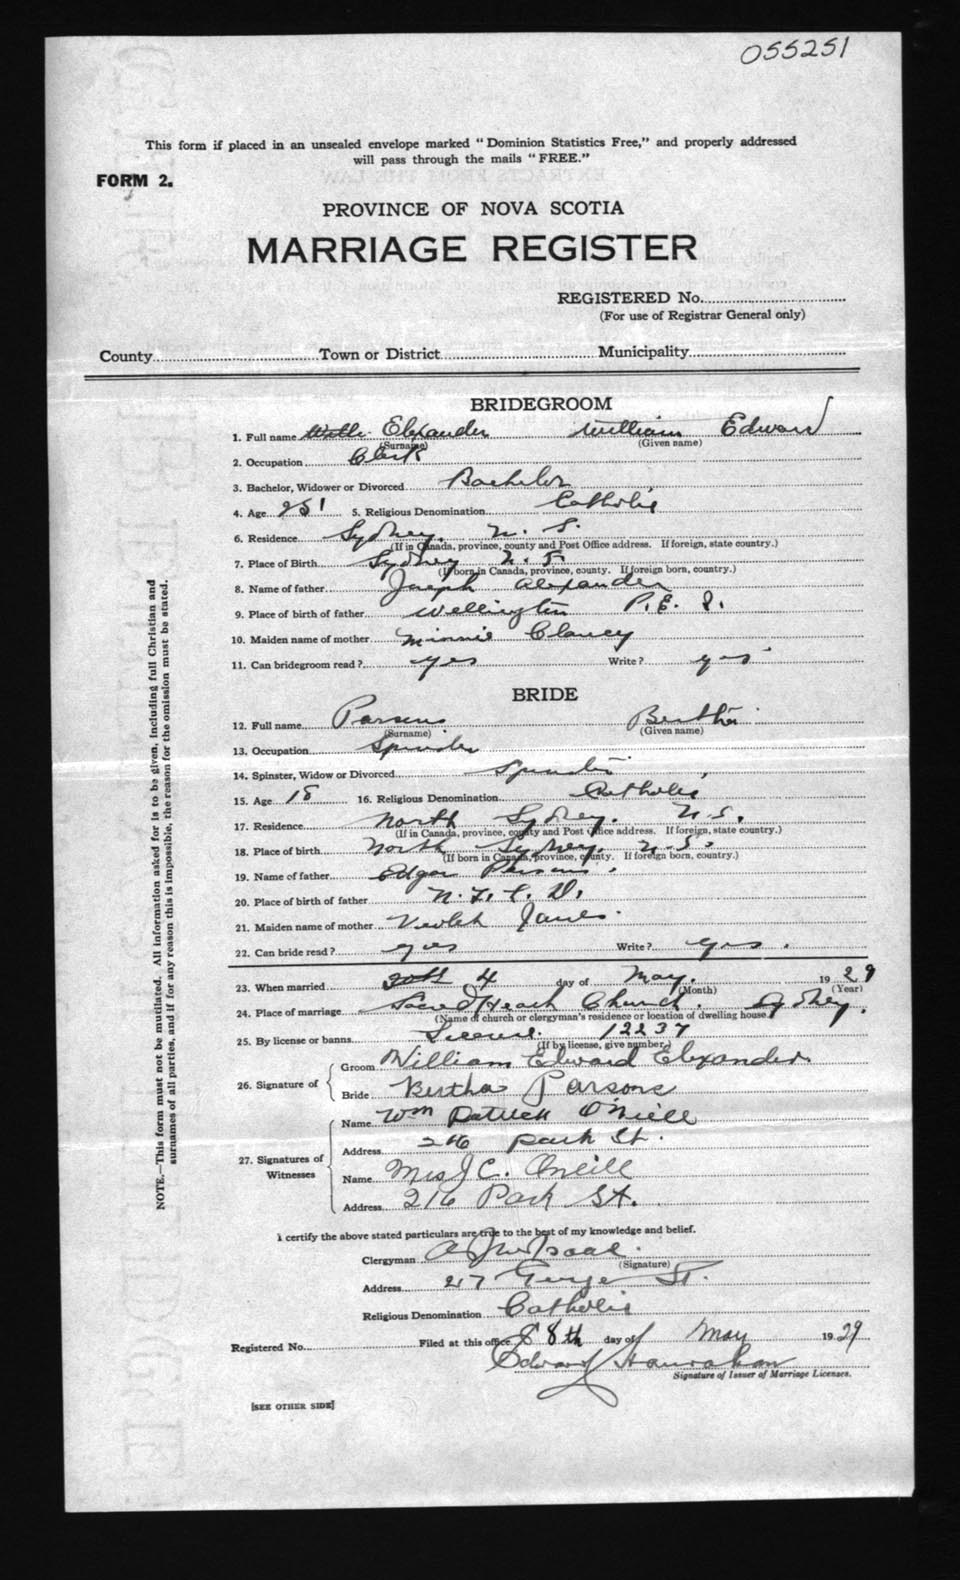 055251
This form if placed in an unsealed envelope marked "Dominion Statistics Free," and properly addressed
will pass through the mails "FREE."
FORM 2.
PROVINCE OF NOVA SCOTIA
MARRIAGE REGISTER
REGISTERED No.
(For use of Registrar General only)
County Town or District Municipality
BRIDEGROOM
1. Full name Elexander William Edward
(Surname) (Given name)
2. Occupation Clerk
3. Bachelor, Widower or Divorced Bachelor
4. Age 5. Religious Denomination Catholic
6. Residence Sydney, N. S.
(If in Canada, province, county and Post Office address. If foreign, state country.)
7. Place of Birth Sydney N. S.
(If born in Canada, province, county. If foreign born, country.)
8. Name of father Joseph Alexander
9. Place of birth of father Wellington P. E. I.
10. Maiden name of mother Minnie Clancy
11. Can bridegroom read? yes Write? yes
BRIDE
12. Full name Parsons Bertha
(Surname) (Given name)
13. Occupation Spinster
14. Spinster, Widow or Divorced Spinster
15. Age 18 16. Religious Denomination Catholic
17. Residence North Sydney. N.S.
(If in Canada, province, county and Post Office address. If foreign, state country.)
18. Place of birth North Sydney. N.S.
(If born in Canada, province, county. If foreign born, country.)
19. Name of father Edgar Parsons.
20. Place of birth of father N. F. L. D.
21. Maiden name of mother Janes
22. Can bride read? yes Write? yes.
23. When married 4 day of May. 1929
(Month) (Year)
24. Place of marriage Church. Sydney.
(Name of church or clergyman's residence or location of dwelling house)
25. By license or banns License. 12237
(If by license, give number)
26. Signature of
Groom William Edward Elexander
Bride Bertha Parsons
27. Signatures of Witnesses
Name Wm Patrick O'Neill
Address 216 Park St.
Name Mrs J C. Oneill
Address 216 Park St.
I certify the above stated particulars are true to the best of my knowledge and belief.
Clergyman
(Signature)
Address 217 George St.
Religious Denomination Catholic
Registered No. Filed at this office 8th day of May 1929
Edward Hanrahan
Signature of Issuer of Marriage Licenses.
[SEE OTHER SIDE]
NOTE.—This form must not be mutilated. All information asked for is to be given, including full Christian and
surnames of all parties, and if for any reason this is impossible, the reason for the omission must be stated.